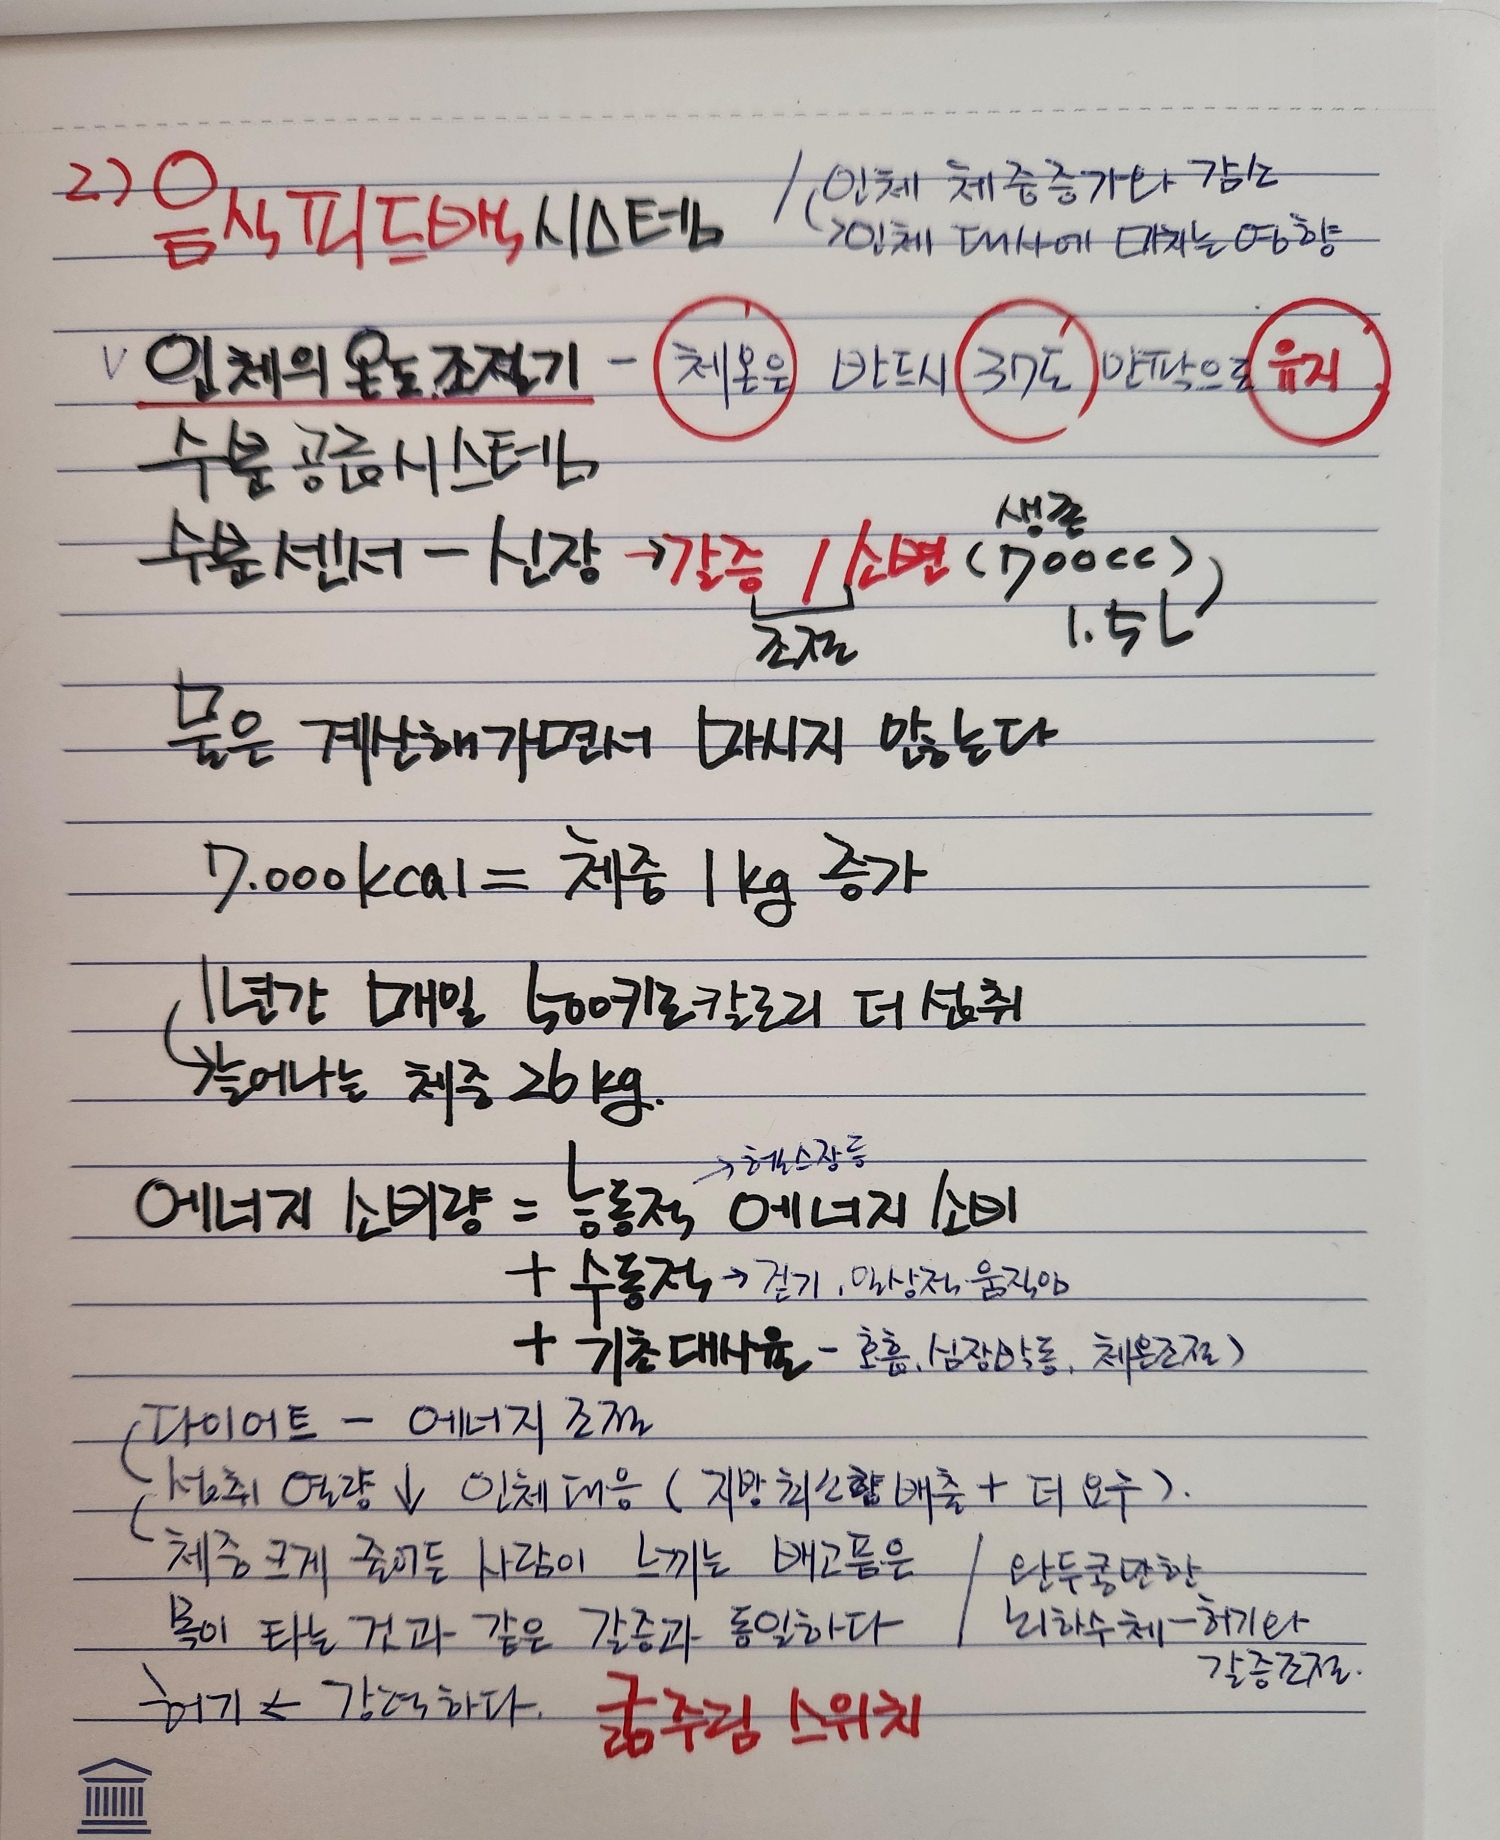 2) 음식피드백시스템 / 인체 체중증가와 감소
>인체 대사에 미치는 영향
V 인체의 온도조절기 - 체온은 반드시 37도 안팎으로 유지
수분 공급시스템
수분센서 - 신장 → 갈증 / 소변 (생존 700cc)
조절 1.5L
물은 계산해가면서 마시지 않는다
7.000kcal = 체중 1kg 증가
1년간 매일 500키로칼로리 더 섭취
→늘어나는 체중 26kg.
→헬스장등
에너지 소비량 = 능동적 에너지 소비
+ 수동적 → 걷기, 일상적 움직임
+ 기초대사율 - 호흡, 심장박동, 체온조절)
다이어트 - 에너지 조절
섭취 열량 ↓ 인체대응 (지방 최소한 배출 + 더 요구).
체중 크게 줄어든 사람이 느끼는 배고픔은 / 완두콩만한
목이 타는 것과 같은 갈증과 동일하다 / 뇌하수체 - 허기와
갈증조절.
허기 ← 강력하다. 굶주림 스위치